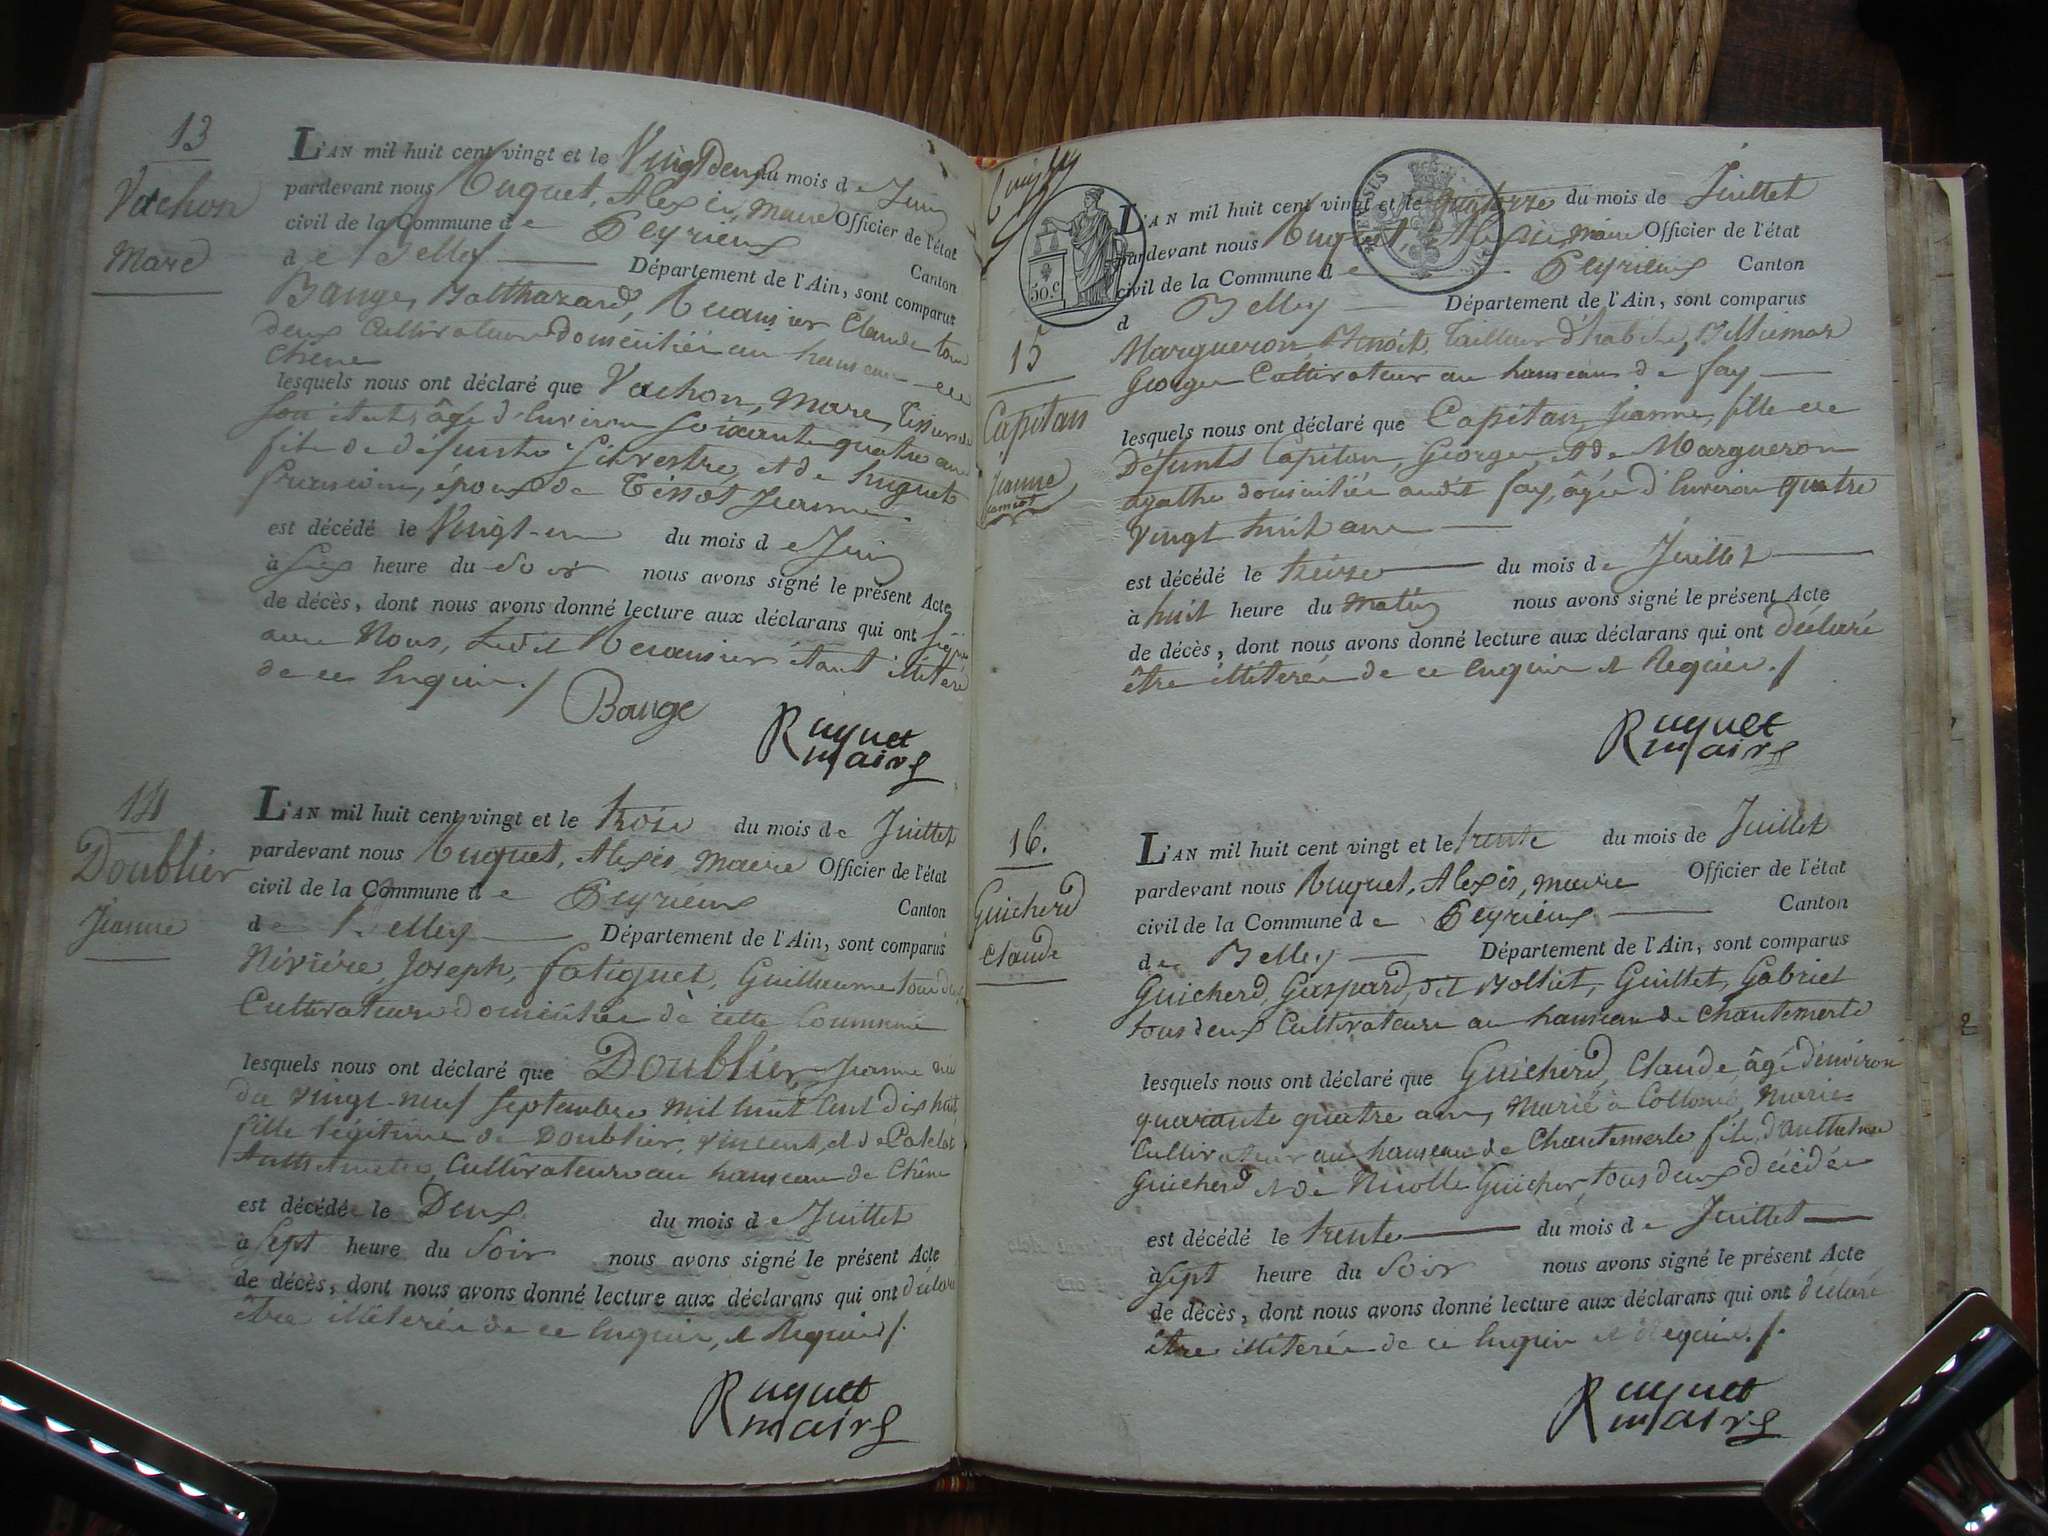 13
Vachon
Marc
L'AN mil huit cent vingt et le Vingt deux du mois de Juin
pardevant nous Ruquet, Alexis, maire Officier de l'état
civil de la Commune de Peyrieux Canton
de Belley Département de l'Ain, sont comparus
Bauge, Balthazard, Claude tous
deux Cultivateurs domiciliés au hameau de
Chêne
lesquels nous ont déclaré que Vachon, Marc, Tisseur de
son état, âgé d'environ soixante quatre ans
fils de défunts Silvestre, et de huguet
époux de Tissot Jeanne.
est décédé le Vingt-un du mois de Juin
à six heure du Soir nous avons signé le présent Acte
de décès, dont nous avons donné lecture aux déclarans qui ont signé
avec Nous, Ledit étant illiteré
de ce Enquis ./
Bauge
Ruquet
maire
14
Doublier
Jeanne
L'AN mil huit cent vingt et le trois du mois de Juillet
pardevant nous Ruquet, Alexis, maire Officier de l'état
civil de la Commune de Peyrieux Canton
de Belley Département de l'Ain, sont comparus
Rivière, Joseph, fatiguet, Guillaume tous deux
Cultivateurs domiciliés de cette Commune
lesquels nous ont déclaré que Doublier, Jeanne née
du vingt-neuf septembre mil huit Cent dix huit
fille légitime de Doublier, vincent, et de
Cultivateurs au hameau de Chêne
est décédé le Deux du mois de Juillet
à Sept heure du Soir nous avons signé le présent Acte
de décès, dont nous avons donné lecture aux déclarans qui ont déclaré
être illiterés de ce Enquis, et Requis ./.
Ruquet
maire
50.c
15
Capitan
Jeanne
L'AN mil huit cent vingt et le quatorze du mois de Juillet
pardevant nous Ruquet, Alexis, maire Officier de l'état
civil de la Commune de Peyrieux Canton
d Belley Département de l'Ain, sont comparus
Margueron, Benoît, Tailleur d'habits, Billiemaz
George Cultivateur au hameau de fay
lesquels nous ont déclaré que Capitan, Jeanne, fille de
Défunts Capitan, George, et de Margueron
agathe domiciliée audit fay, âgée d'Environ quatre
vingt huit ans
est décédé le treize du mois de Juillet
à huit heure du matin nous avons signé le présent Acte
de décès, dont nous avons donné lecture aux déclarans qui ont déclaré
être illiterés de ce Enquis et Requis ./
Ruquet
maire
16.
Guicherd
Claude
L'AN mil huit cent vingt et le trente du mois de Juillet
pardevant nous Ruquet, Alexis, maire Officier de l'état
civil de la Commune de Peyrieux Canton
de Belley Département de l'Ain, sont comparus
Guicherd, Gaspard, dit Bolliet, Guillet, Gabriel
tous deux Cultivateurs au hameau de Chantemerle
lesquels nous ont déclaré que Guicherd, Claude, âgé d'environ
quarante quatre ans, Marié à Collomb, Marie
Cultivateur au hameau de Chantemerle fils d'anthelme
Guicherd et de Nicolle Guicher, tous deux décédés
est décédé le trente du mois de Juillet
à Sept heure du Soir nous avons signé le présent Acte
de décès, dont nous avons donné lecture aux déclarans qui ont déclaré
être illiterés de ce Enquis et Requis ./.
Ruquet
maire